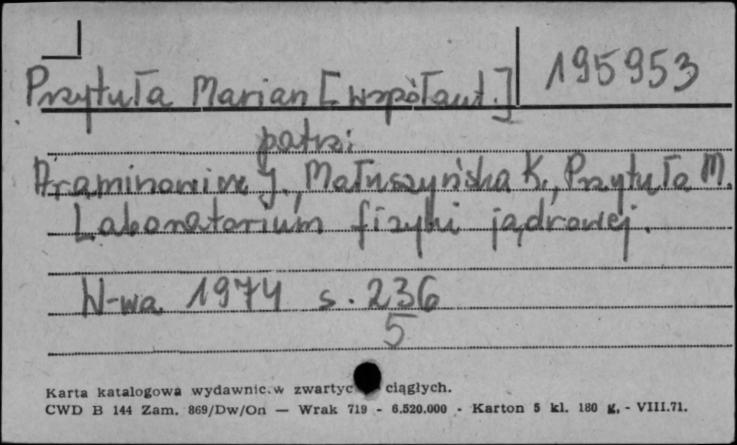 Przytuła Marian [współaut.] 195953
patrz:
Araminowicz J., Małuszyńska K., Przytuła M.
Laboratorium fizyki jądrowej.
W-wa 1974 s. 236
5
Karta katalogowa wydawnic. w zwartyc ciągłych.
CWD B 144 Zam. 869/Dw/On — Wrak 719 - 6.520.000 - Karton 5 kl. 180 g. - VIII.71.